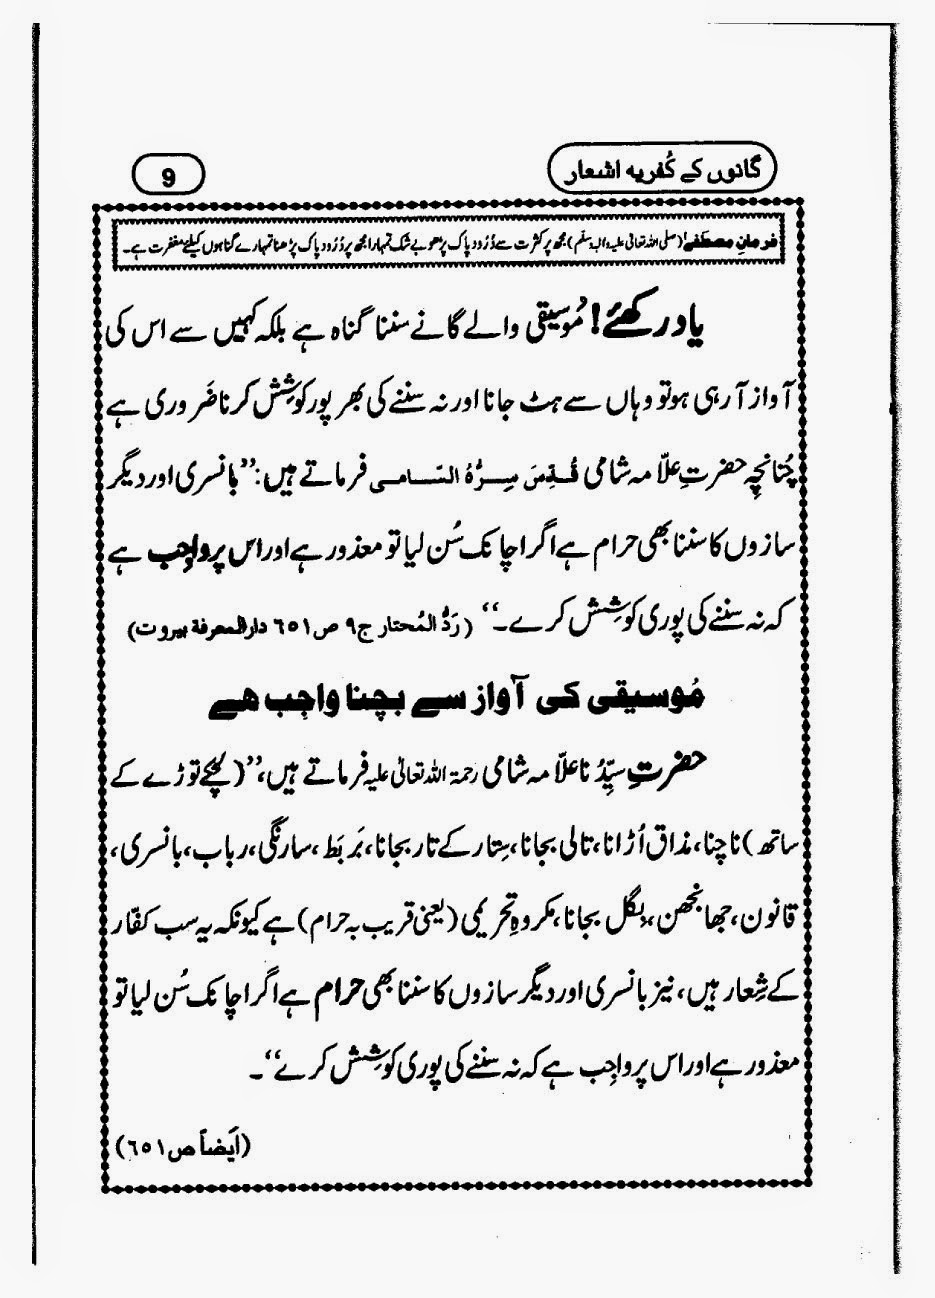 گانوں کے کُفریہ اشعار
9
فرمانِ مصطَفٰے (صلی اللہ تعالیٰ علیہ والہ وسلّم) مجھ پر کثرت سے دُرُود پاک پڑھو بے شک تمہارا مجھ پر دُرُود پاک پڑھنا تمہارے گناہوں کیلئے مغفرت ہے۔
یاد رکھئے! مُوسیقی والے گانے سننا گناہ ہے بلکہ کہیں سے اس کی
آواز آرہی ہو تو وہاں سے ہٹ جانا اور نہ سننے کی بھر پور کوشِش کرنا ضَروری ہے
چُنانچِہ حضرتِ علّامہ شامی قُدِّسَ سِرُّہُ السَّامی فرماتے ہیں: ’’بانسری اور دیگر
سازوں کا سننا بھی حرام ہے اگر اچانک سُن لیا تو معذور ہے اور اس پر واجِب ہے
کہ نہ سننے کی پوری کوشِش کرے۔‘‘ (رَدُّ المُحتار ج۹ ص۶۵۱ دارالمعرفۃ بیروت)
مُوسیقی کی آواز سے بچنا واجِب ھے
حضرتِ سیِّدُنا علّامہ شامی رحمۃ اللہ تعالیٰ علیہ فرماتے ہیں، ’’(لچکے توڑے کے
ساتھ) ناچنا، مذاق اُڑانا، تالی بجانا، سِتار کے تار بجانا، بَربَط، سارنگی، رباب، بانسری،
قانون، جھانجھن، بِگل بجانا، مکروہِ تحریمی (یعنی قریب بہ حرام) ہے کیونکہ یہ سب کفّار
کے شِعار ہیں، نیز بانسری اور دیگر سازوں کا سننا بھی حرام ہے اگر اچانک سُن لیا تو
معذور ہے اور اس پر واجِب ہے کہ نہ سننے کی پوری کوشِش کرے‘‘۔
(اَیضاً ص۶۵۱)